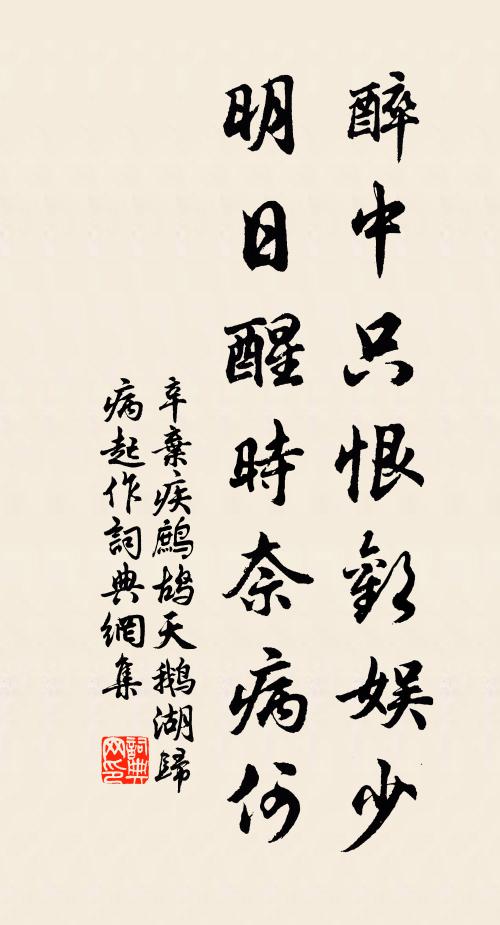 醉中只恨歡娛少
明日醒時奈病何
辛棄疾鷓鴣天鵝湖歸
病起作詞典網集
詞典
网印